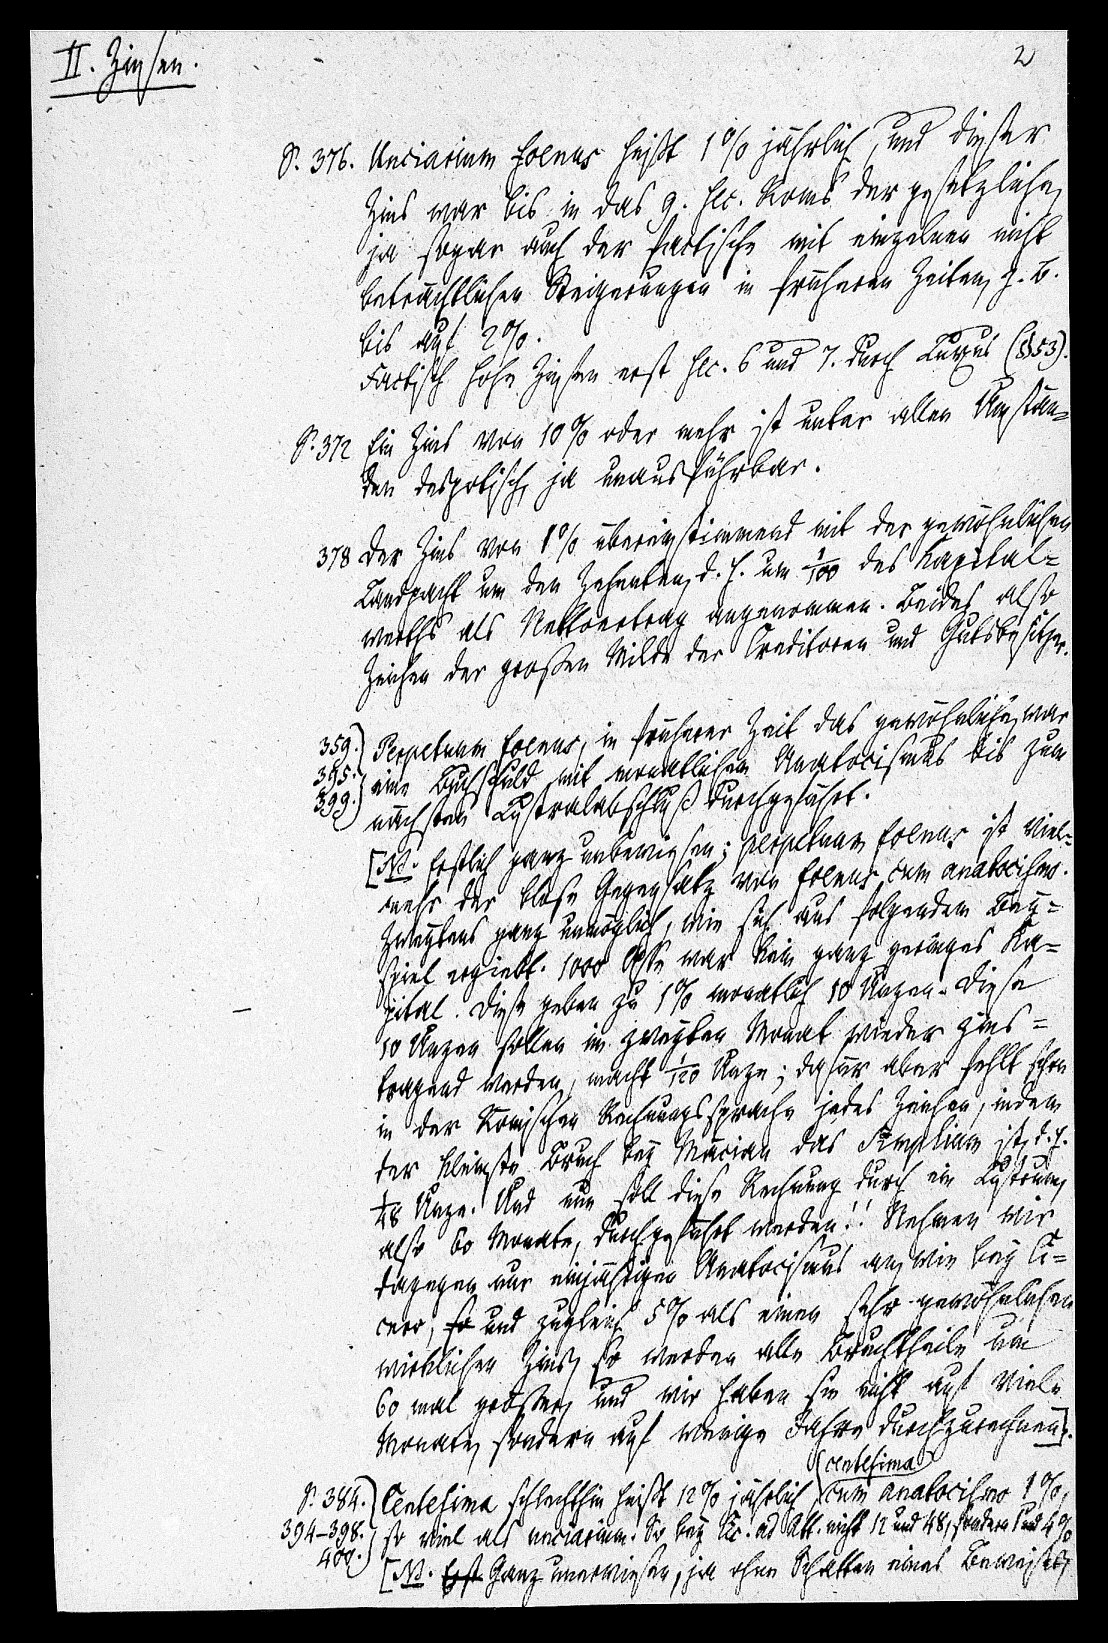 II. Zinsen.
2
S. 376. Unciarium foenus heißt 1% jährlich, und dieser
Zins war bis in das 9. sec. Roms der gesetzliche,
ja sogar auch der factische mit einzelnen nicht
beträchtlichen Steigerungen in früheren Zeiten, z. B.
bis auf 2%.
Factisch hohe Zinsen erst sec. 6 und 7. durch Luxus (§53).
S. 372 Ein Zins von 10% oder mehr ist unter allen Umstän=
den despotisch, ja unausführbar.
378 Der Zins von 1% übereinstimmend mit der gewöhnlichen
Landpacht um den Zehenten, d. h. um 1/100 des Kapital=
werths als Nettoertrag angenommen. Beides also
Zeichen der großen Milde der Creditoren und Gutsbesitzer.
359. Perpetuum foenus, in früherer Zeit das gewöhnliche, war
395. eine Buchschuld mit monatlichem Anatocismus bis zum
399. nächsten Lustralabschluß durchgeführt.
[NB. Erstlich ganz unbewiesen; perpetuum foenus ist viel=
mehr der bloße Gegensatz von foenus cum anatocismo.
Zweytens ganz unmöglich, wie sich aus folgendem Bey=
spiel ergiebt. 1000 Asse war kein ganz geringes Ka=
pital. Diese geben zu 1% monatlich 10 Unzen. Diese
10 Unzen sollen im zweyten Monat wieder zins=
tragend werden, macht 1/120 Unze; dafür aber fehlt schon
in der Römischen Rechnungssprache jedes Zeichen, indem
der kleinste Bruch bey Mäcian das Simplium ist, d. h.
1/48 Unze. Und nun soll diese Rechnung durch ein Lustrum,
also 60 Monate, durchgeführt werden!! Nehmen wir
dagegen nur einjährigen Anatocismus an, wie bey Ci=
cero, so und zugleich 5% als einen sehr gewöhnlichen
wirklichen Zins, so werden alle Bruchtheile um
60 mal größer, und wir haben sie nicht auf viele
Monate, sondern auf wenige Jahre durchzurechnen].
centesima
S. 384. Centesima schlechthin heißt 12% jährlich, cum anatocismo 1%,
394-398. so viel als unciarium. So bey Cic. ad Att. nicht 12 und 48, sondern 1 und 4%
400. [NB. Erst Ganz unerwiesen, ja ohne Schatten eines Beweises,